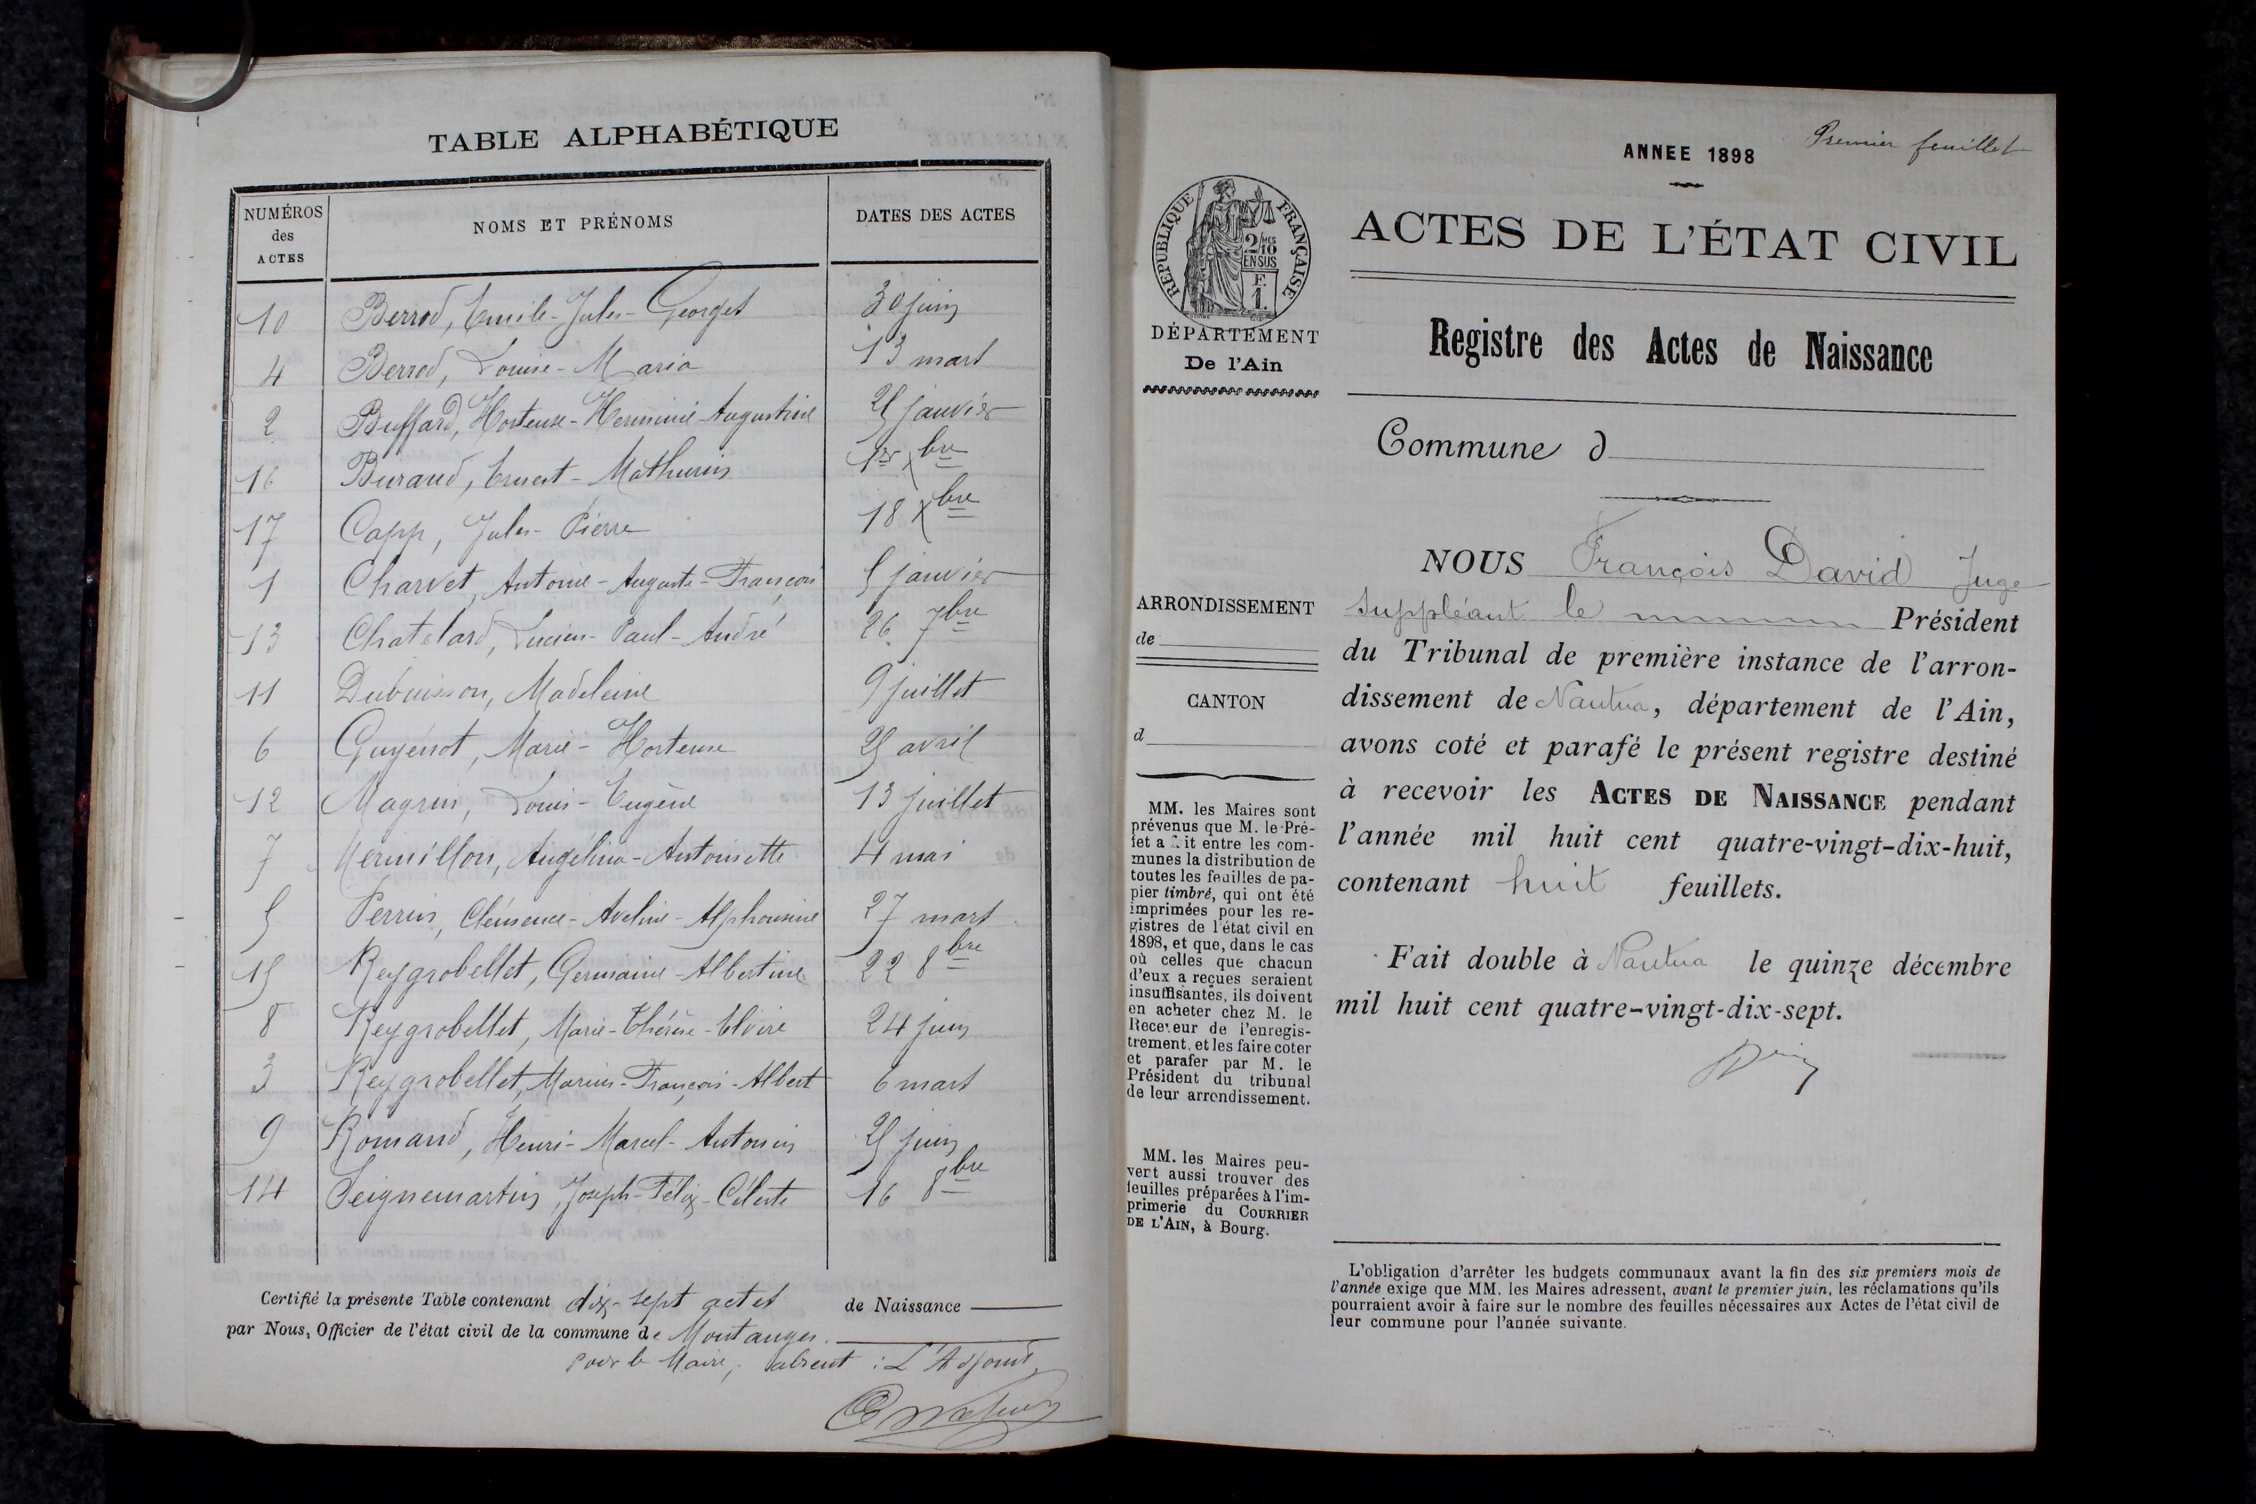 TABLE ALPHABÉTIQUE
NUMÉROS des ACTES
NOMS ET PRÉNOMS
DATES DES ACTES
10 Berrod, Emile-Jules-Georges 30 juin
4 Berrod, Louise-Maria 13 mars
2 Buffard, Hortense-Herminie-Augustine 25 janvier
16 Buraud, Ernest-Mathurin 1er Xbre
17 Capp, Jules-Pierre 18 Xbre
1 Charvet, Antonie-Auguste-François 5 janvier
13 Chatelard, Lucien-Paul-André 26 7bre
11 Dubuisson, Madeleine 9 juillet
6 Guyénot, Marie-Hortense 25 avril
12 Magnin, Louis-Eugène 13 juillet
7 Mermillon, Angélina-Antoinette 4 mai
5 Perrin, Clémence-Aveline-Alphonsine 27 mars
15 Reygrobellet, Germaine-Albertine 22 8bre
8 Reygrobellet, Marie-Thérèse-Elvire 24 juin
3 Reygrobellet, Marius-François-Albert 6 mars
9 Romand, Henri-Marcel-Antonin 25 juin
14 Seignemartin, Joseph-Félix-Céleste 16 8bre
Certifié la présente Table contenant dix-sept actes de Naissance
par Nous, Officier de l'état civil de la commune de Montanges.
Pour le Maire, absent : L'Adjoint,
Premier feuillet
ANNEE 1898
RÉPUBLIQUE FRANÇAISE
2/10
EN SUS
F.
1.
DÉPARTEMENT
De l'Ain
ARRONDISSEMENT
de
CANTON
d
MM. les Maires sont
prévenus que M. le Pré-
fet a fait entre les com-
munes la distribution de
toutes les feuilles de pa-
pier timbré, qui ont été
imprimées pour les re-
gistres de l'état civil en
1898, et que, dans le cas
où celles que chacun
d'eux a reçues seraient
insuffisantes, ils doivent
en acheter chez M. le
Receveur de l'enregis-
trement, et les faire coter
et parafer par M. le
Président du tribunal
de leur arrondissement.
MM. les Maires peu-
vent aussi trouver des
feuilles préparées à l'im-
primerie du COURRIER
DE L'AIN, à Bourg.
ACTES DE L'ÉTAT CIVIL
Registre des Actes de Naissance
Commune d
NOUS François David Juge
suppléant le Président
du Tribunal de première instance de l'arron-
dissement de Nantua, département de l'Ain,
avons coté et parafé le présent registre destiné
à recevoir les ACTES DE NAISSANCE pendant
l'année mil huit cent quatre-vingt-dix-huit,
contenant huit feuillets.
Fait double à Nantua le quinze décembre
mil huit cent quatre-vingt-dix-sept.
L'obligation d'arrêter les budgets communaux avant la fin des six premiers mois de
l'année exige que MM. les Maires adressent, avant le premier juin, les réclamations qu'ils
pourraient avoir à faire sur le nombre des feuilles nécessaires aux Actes de l'état civil de
leur commune pour l'année suivante.